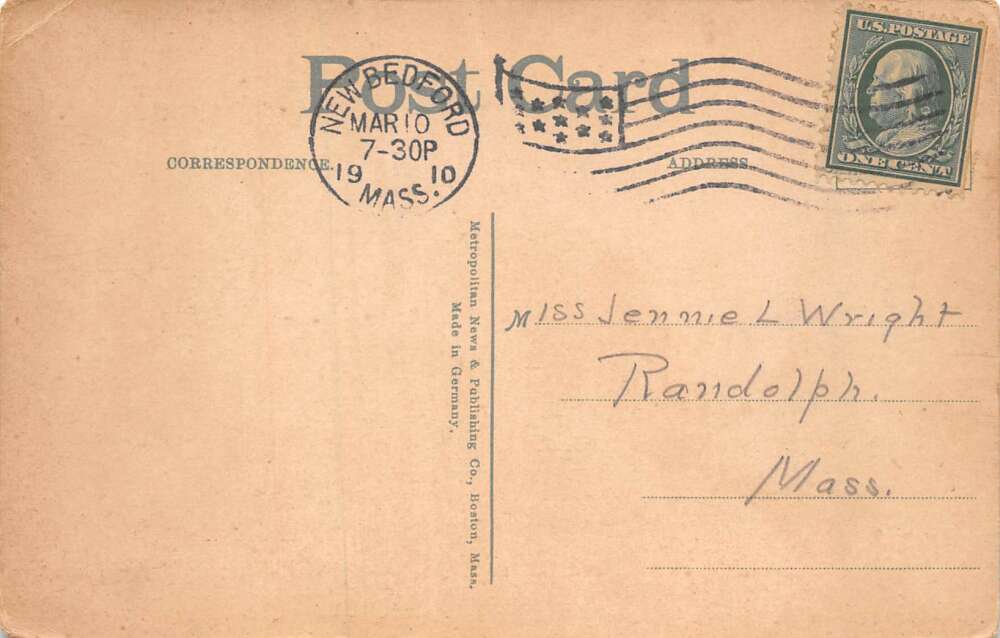 Post Card
NEW BEDFORD
MAR 10
7-30P
19 10
MASS.
U.S. POSTAGE
ONE CENT
CORRESPONDENCE.
ADDRESS
Metropolitan News & Publishing Co., Boston, Mass.
Made in Germany.
Miss Jennie L Wright
Randolph.
Mass.